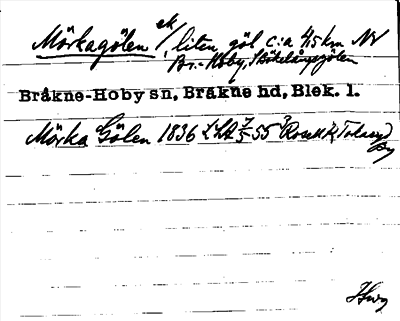 Mörkagölen ek/, liten göl c:a 4,5 km NV
Br.-Hoby, S Bökelångsgölen
Bräkne-Hoby sn, Bräkne hd, Blek. l.
Mörka Gölen 1836 LSA 55 Tolseryd